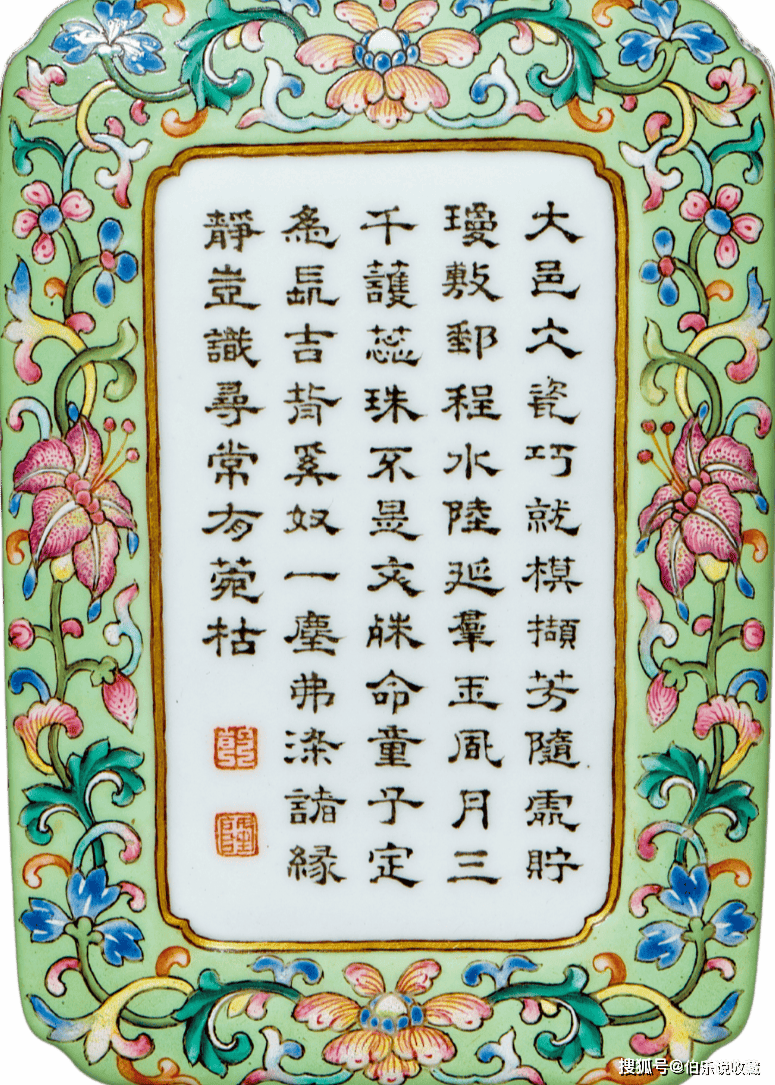 大邑仌瓷巧就模擷芳隨處貯
瓊敷郵程水陸延羣玉風月三
千護蕊珠不是文殊命童子定
為長吉背奚奴一塵弗染諸緣
靜豈識尋常有菀枯
乾
隆
搜狐号@伯乐说收藏